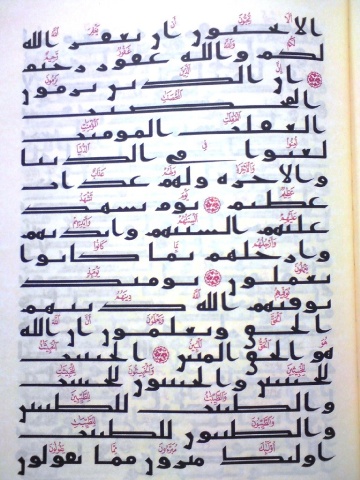 الا تحبون ان يغفر الله
لكم والله غفور رحيم
ان الذين يرمون
المحصنت
الغفلت المومنت
لعنوا في الدنيا
والاخره ولهم عذاب
عظيم يوم تشهد
عليهم السنتهم وايديهم
وارجلهم بما كانوا
يعملون يومئذ
يوفيهم الله دينهم
الحق ويعلمون ان الله
هو الحق المبين الخبيثت
للخبيثين والخبيثون للخبيثت
والطيبت للطيبين
والطيبون للطيبت
اوليك مبرون مما يقولون